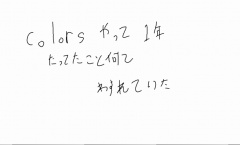 colors やって 1年
たってたこと何て
わすれていた